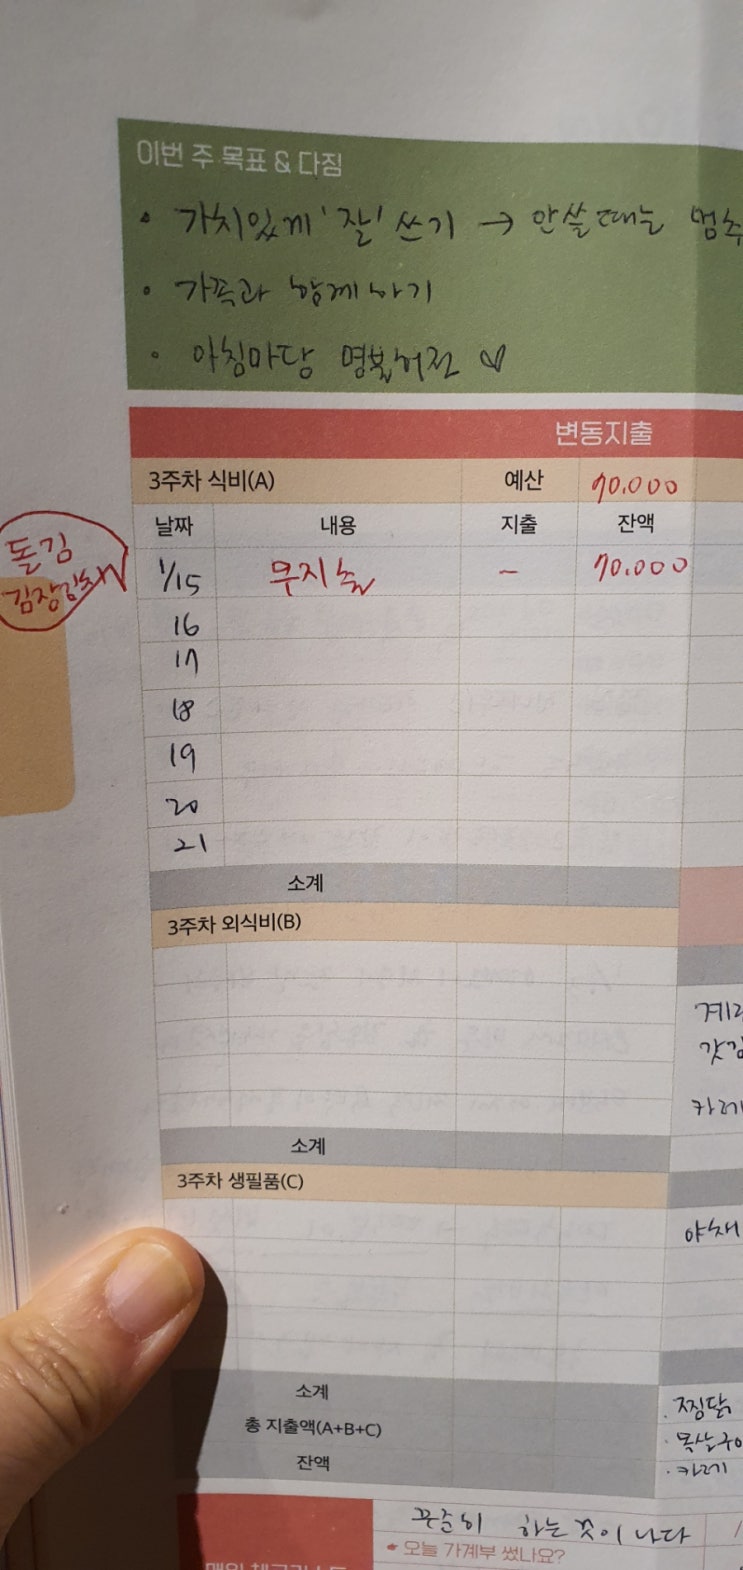 이번 주 목표 & 다짐
• 가치있게 '잘' 쓰기 → 안쓸때는 멈추
• 가족과 함께하기
• 아침마당
변동지출
3주차 식비(A) 예산 70.000
날짜 내용 지출 잔액
돌김
김장김치
1/15 무지출 - 70.000
16
17
18
19
20
21
소계
3주차 외식비(B)
갓김
카레
소계
3주차 생필품(C)
야채
소계
총 지출액(A+B+C)
잔액
· 찜닭
· 목살구이
· 카레
꾸준히 하는 것이 나다
오늘 가계부 썼나요?